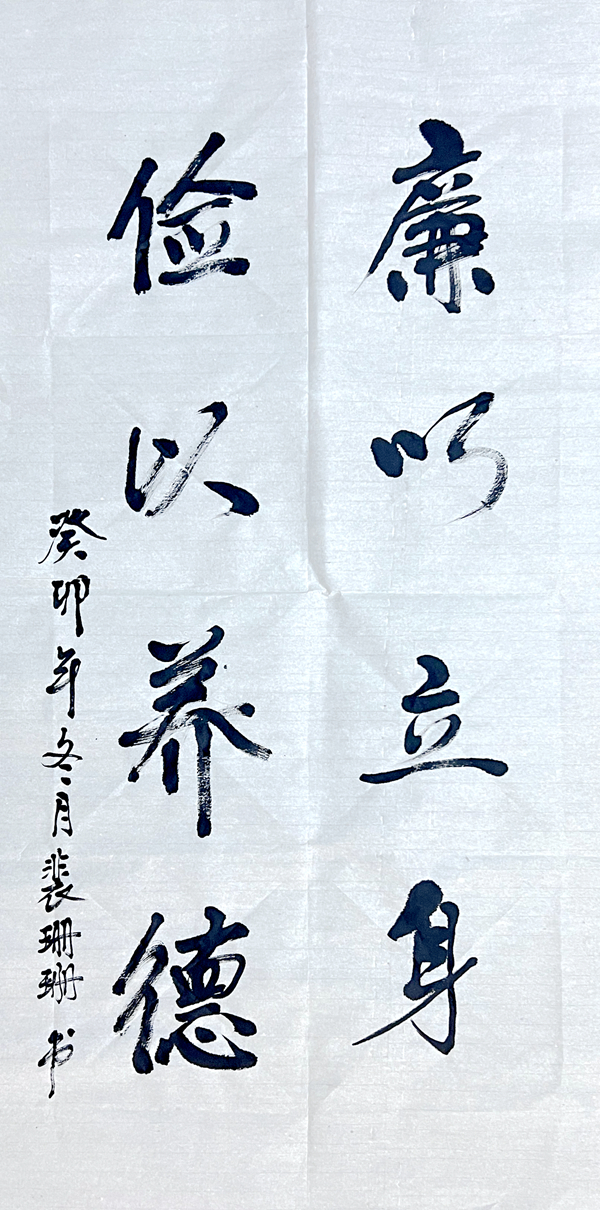 廉以立身
俭以养德
癸卯年冬月裴珊珊书